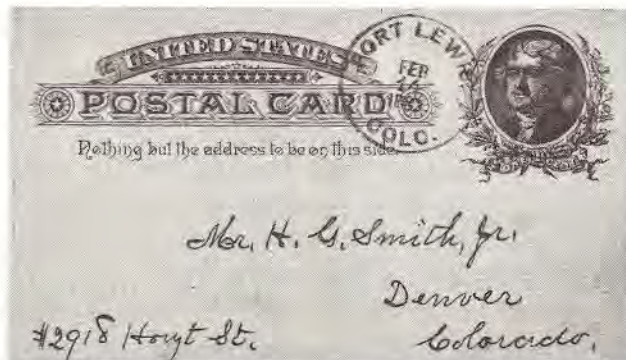 UNITED STATES
POSTAL CARD
Nothing but the address to be on this side.
FORT LEWIS
FEB
COLO.
Mr. H. G. Smith, Jr.
Denver
#2918 Hoyt St.
Colorado.